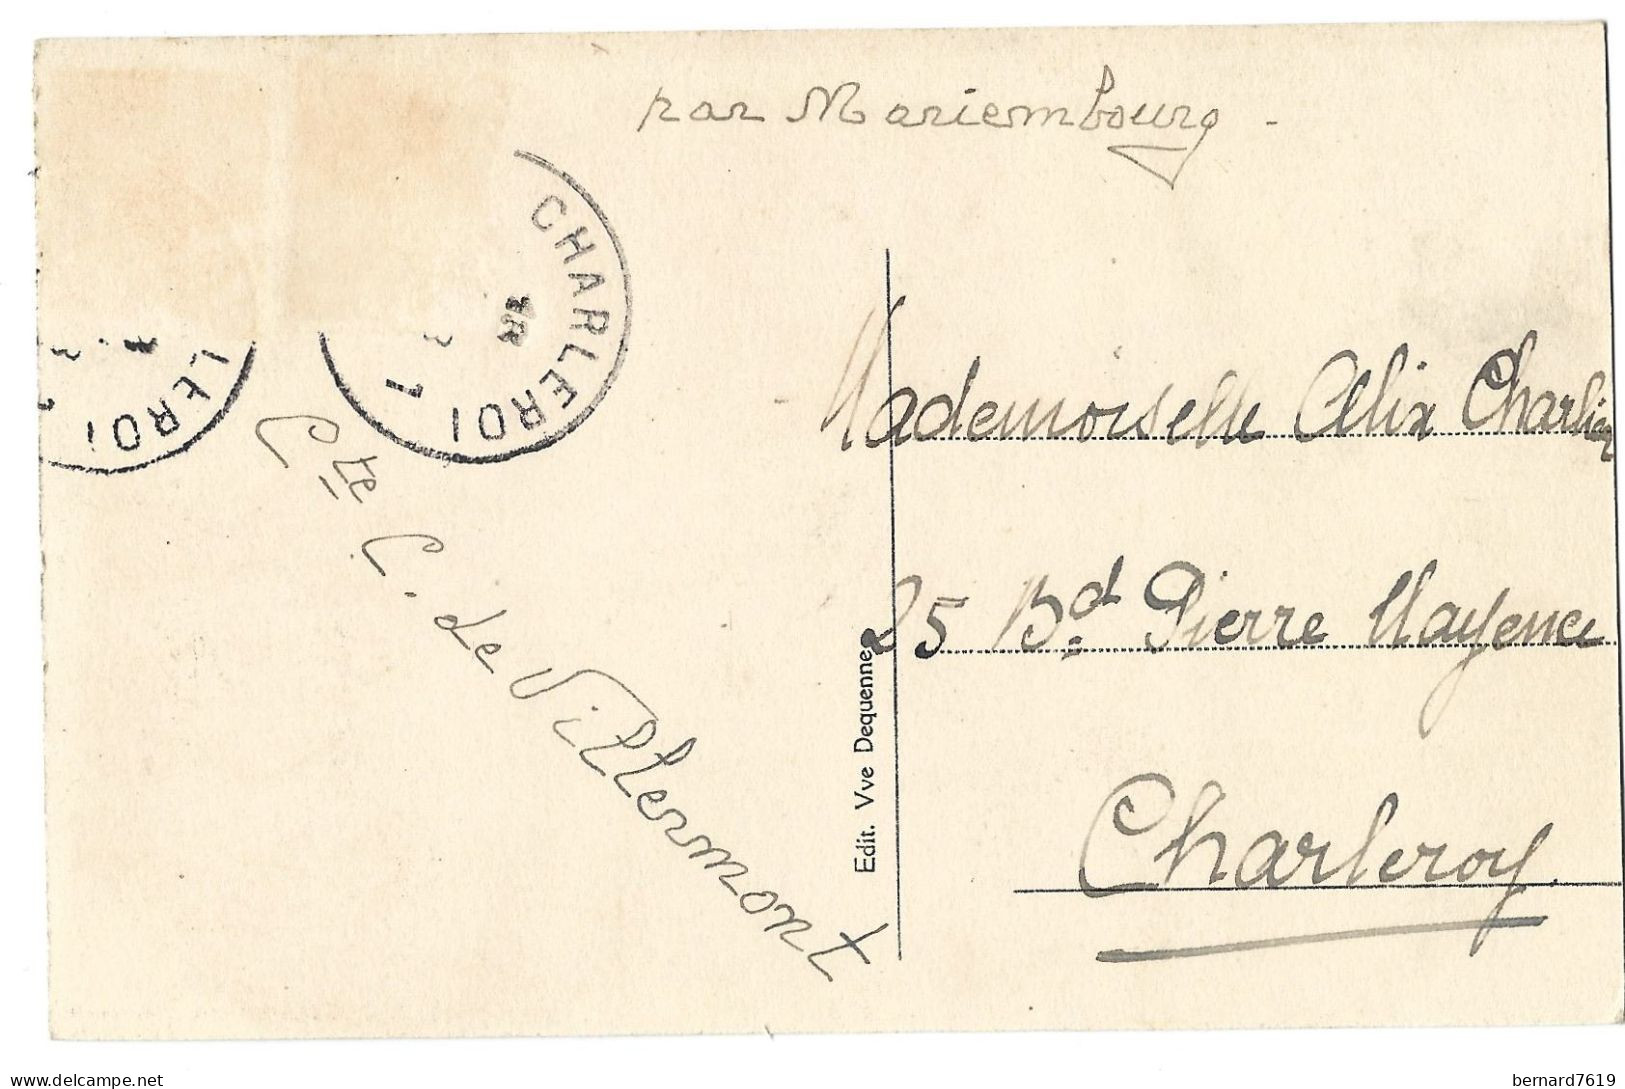 par Mariembourg -
CHARLEROI
1
LEROI
Cte C. de Villermont
Mademoiselle Alix Charlier
25 Bd. Pierre Mayence
Charleroy.
Edit. Vve Dequenne
bernard7619